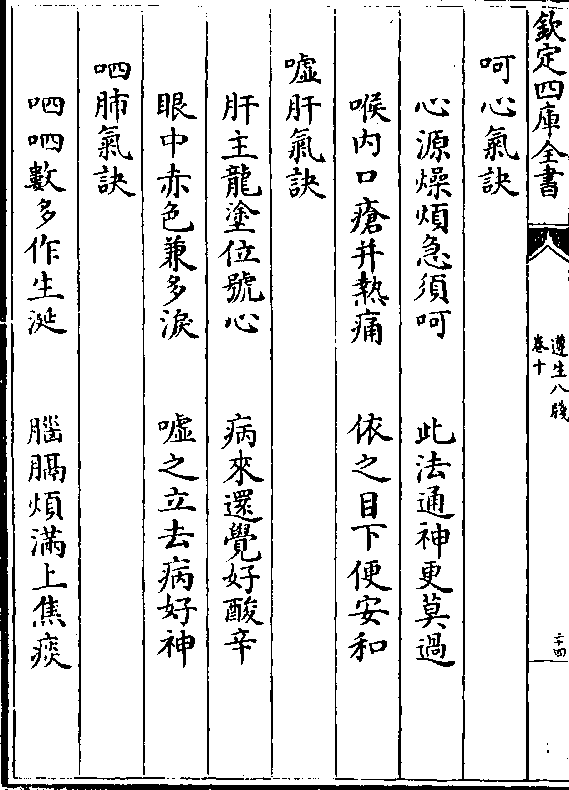 欽定四庫全書
遵生八牋
卷十
二十四
呵心氣訣
心源燥煩急須呵　此法通神更莫過
喉内口瘡并熱痛　依之目下便安和
噓肝氣訣
肝主龍塗位號心　病來還覺好酸辛
眼中赤色兼多淚　噓之立去病好神
呬肺氣訣
呬呬數多作生涎　腦膈煩滿上焦痰